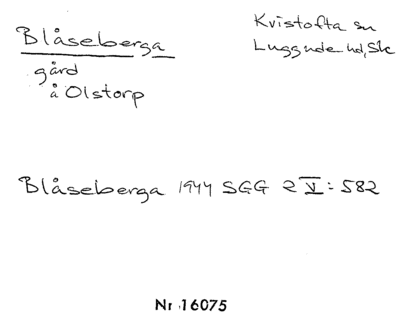 Blåseberga
gård
å Olstorp
Kristofta sn
Luggude hd, Sk
Blåseberga 1944 SGG 2 V: 582
Nr 16075